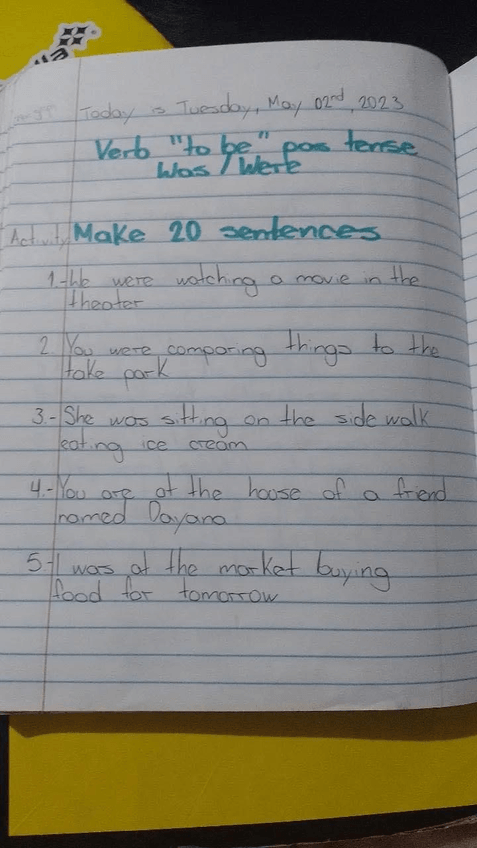 Today is Tuesday, May 02nd, 2023
Verb "to be" pas tense
Was / Were
Activity Make 20 sentences
1.- We were watching a movie in the
theater
2. You were comparing things to the
take park
3.- She was sitting on the side walk
eating ice cream
4.- You are at the house of a friend
named Dayana
5.- I was at the market buying
food for tomorrow